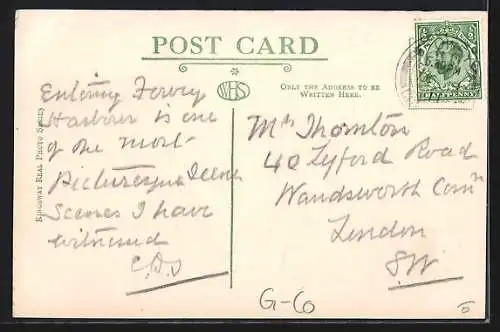 POST CARD
WHS
ONLY THE ADDRESS TO BE
WRITTEN HERE.
KINGSWAY REAL PHOTO SERIES
Entering Fowey
Harbour is one
of the most
Picturesque
Scenes I have
witnessed
Mrs Thornton
40 Lyford Road
Wandsworth Comn
London
SW
G-Co